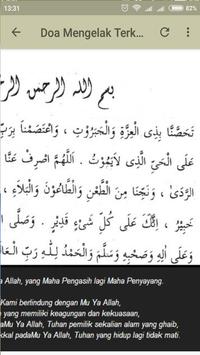 13:31
Doa Mengelak Terk...
بسم الله الرحمن الر
تَحَصَّنَّا بِذِى الْعِزَّةِ وَالْجَبَرُوْتِ ، وَاعْتَصَمْنَا بِرَبِّ
عَلَى الْحَيِّ الَّذِى لَايَمُوْتُ . اَللّٰهُمَّ اصْرِفْ عَنَّا
الرَّدٰى ، وَنَجِّنَا مِنَ الطَّعْنِ وَالطَّاعُوْنِ وَالْبَلَاءِ ،
خَبِيْرُ ، اِنَّكَ عَلَى كُلِّ شَيْءٍ قَدِيْرٌ . وَصَلَّى ا
وَعَلَى اٰلِهِ وَصَحْبِهِ وَسَلَّمَ وَالْحَمْدُ لِلّٰهِ رَبِّ الْعَا
a Allah, yang Maha Pengasih lagi Maha Penyayang.
Kami berlindung dengan Mu Ya Allah,
yang memiliki keagungan dan kekuasaan,
daMu Ya Allah, Tuhan pemilik sekalian alam yang ghaib,
kkal padaMu Ya Allah, Tuhan yang hidup lagi tidak mati.